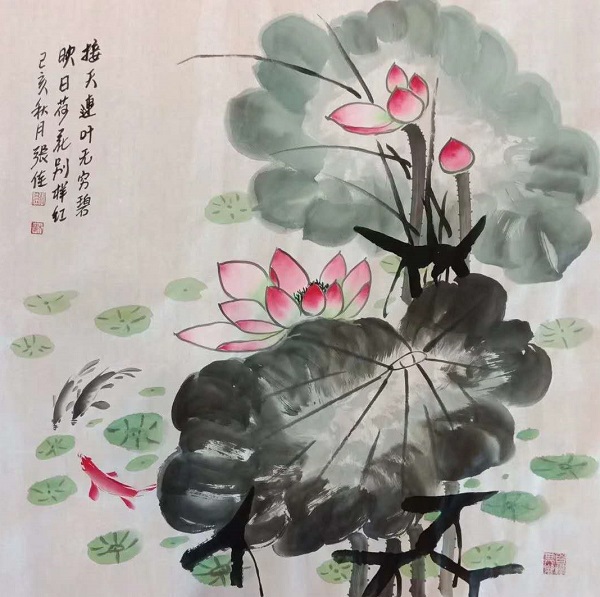 接天连叶无穷碧
映日荷花别样红
己亥秋月張佳